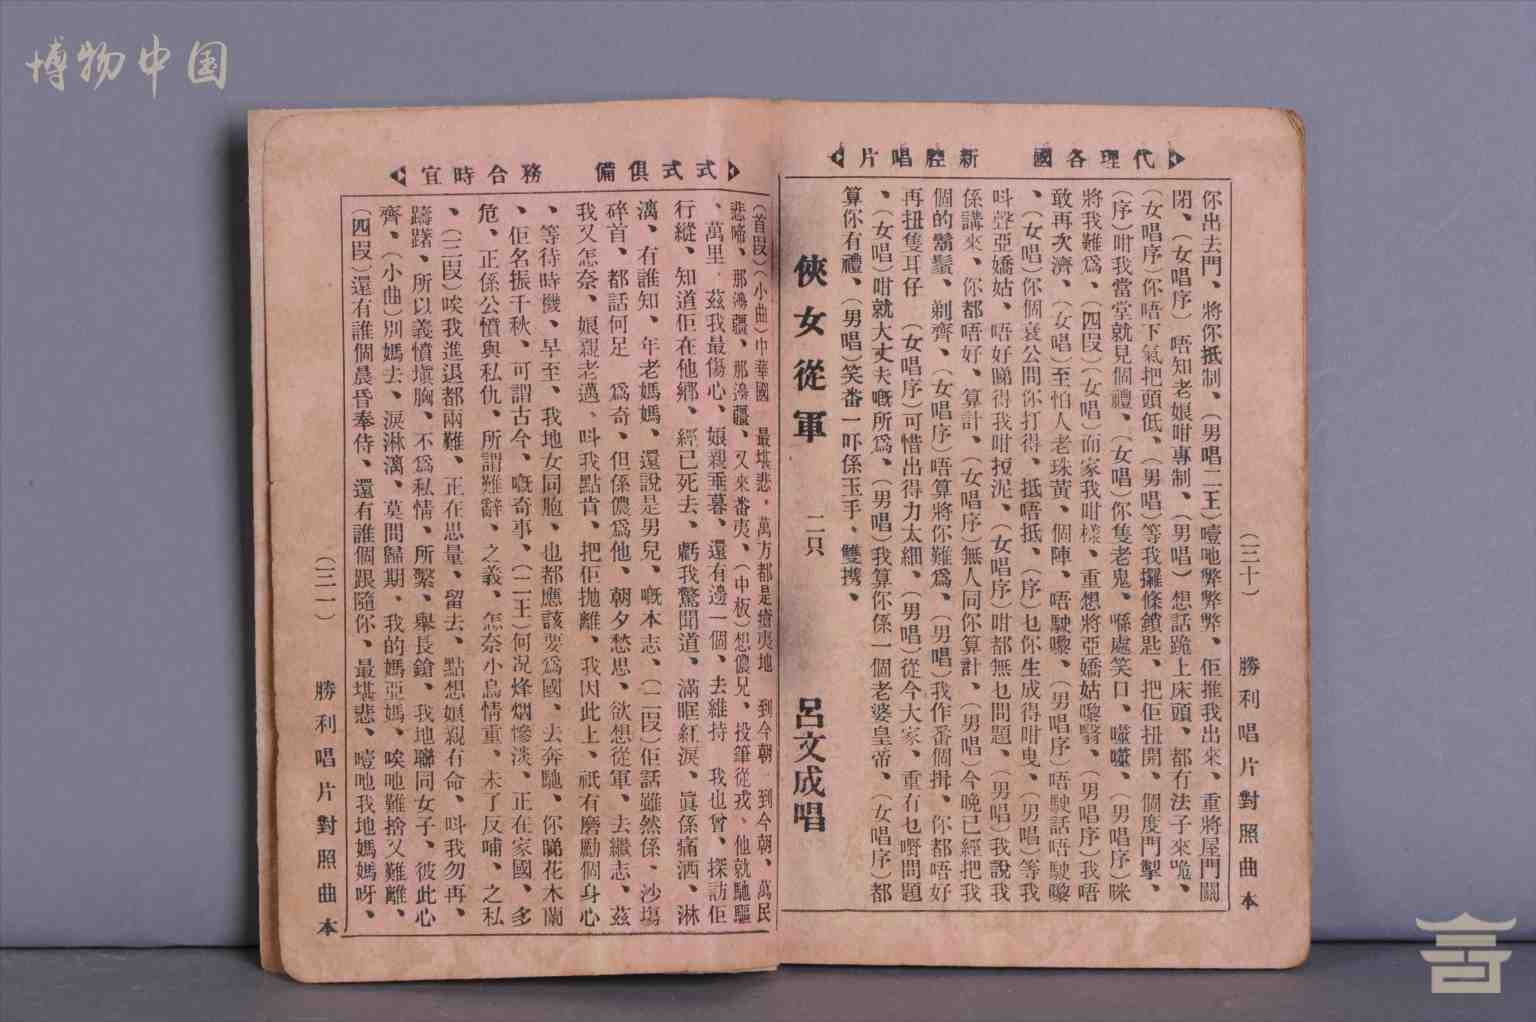 博物中国
代理各國 新腔唱片
你出去門、將你抵制、（男唱二王）噎吔弊弊弊、佢推我出來、重將屋門關
閉、（女唱序）唔知老娘咁專制、（男唱）想話跪上床頭、都有法子來喺、
（女唱序）你唔下氣把頭低、（男唱）等我攞條鎖匙、把佢扭開、個度門掣、
（序）咁我當堂就見個禮、（女唱）你隻老鬼、喺處笑口、噬噬、（男唱序）咪
將我難爲、（四段）（女唱）而家我咁樣、重想將亞嬌姑嚟翳、（男唱序）我唔
敢再次濟、（女唱）至怕人老珠黃、個陣、唔駛嚟、（男唱序）唔駛話唔駛嚟
、（女唱）你個衰公問你打得、抵唔抵、（序）乜你生成得咁曳、（男唱）等我
呌聲亞嬌姑、唔好睇得我咁㨃泥、（女唱序）咁都無乜問題、（男唱）我說我
係講來、你都唔好、算計、（女唱序）無人同你算計、（男唱）今晚已經把我
個的鬍鬚、剃齊、（女唱序）唔算將你難爲、（男唱）我作番個揖、你都唔好
再扭隻耳仔 （女唱序）可惜出得力太細、（男唱）從今大家、重冇乜嘢問題
、（女唱）咁就大丈夫嘅所爲、（男唱）我算你係一個老婆皇帝、（女唱序）都
算你有禮、（男唱）笑番一吓係玉手、雙携、
俠女從軍 二只 呂文成唱
（三十） 勝利唱片對照曲本
式式俱備 務合時宜
（首段）（小曲）中華國 最堪悲、萬方都是瘡夷地 到今朝 到今朝、萬民
悲啼、那鴻疆、那鴻疆、又來番夷、（中板）想儂兄、投筆從戎、他就馳驅
、萬里 茲我最傷心、娘親垂暮、還有邊一個、去維持 我也曾、探訪佢
行縱、知道佢在他鄉、經已死去、虧我驚聞道、滿眶紅淚、眞係痛洒、淋
漓、有誰知、年老媽媽、還說是男兒、嘅本志、（二段）佢話雖然係、沙塲
碎首、都話何足 爲奇、但係儂爲他、朝夕愁思、欲想從軍、去繼志、茲
我又怎奈、娘親老邁、呌我點肯、把佢拋離、我因此上、祇有磨勵個身心
、等待時機、早至、我地女同胞、也都應該要爲國、去奔馳、你睇花木蘭
、佢名振千秋、可謂古今、嘅奇事、（二王）何况烽烟慘淡、正在家國、多
危、正係公憤與私仇、所謂難辭、之義、怎奈小鳥情重、未了反哺、之私
、（三段）唉我進退都兩難、正在思量、留去、點想娘親有命、呌我勿再、
躊躇、所以義憤塡胸、不爲私情、所繫、舉長鎗、我地聯同女子、彼此心
齊、（小曲）別媽去、淚淋漓、莫問歸期、我的媽亞媽、唉吔難捨又難離、
（四段）還有誰個晨昏奉侍、還有誰個跟隨你、最堪悲、噎吔我地媽媽呀、
（三一） 勝利唱片對照曲本